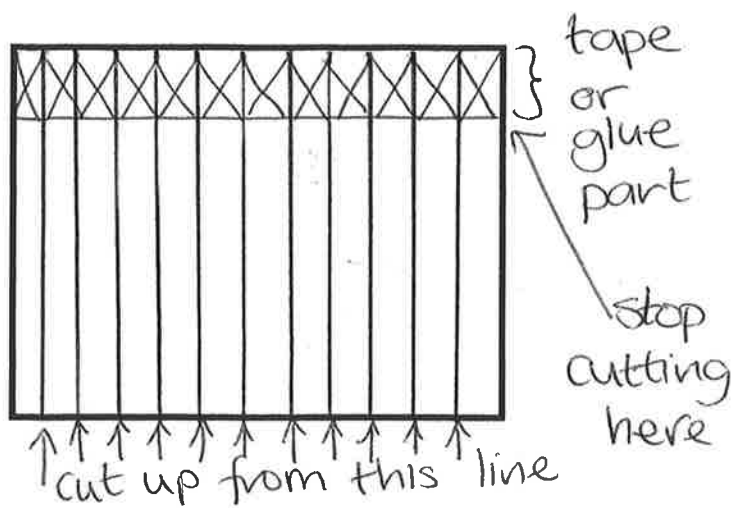 tape
or
glue
part
stop
cutting
here
cut up from this line